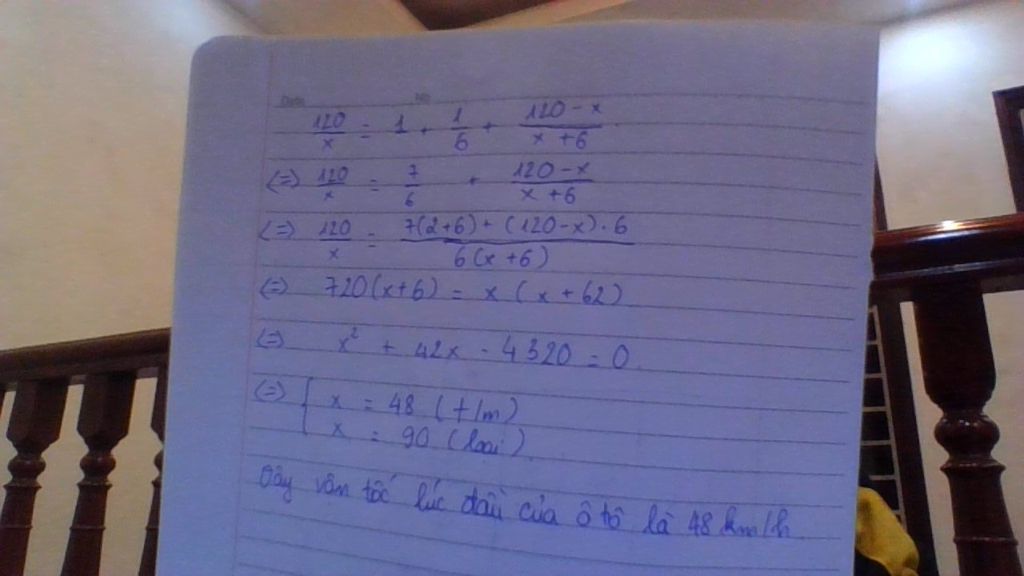 Date No
120/x = 1 + 1/6 + (120 - x)/(x + 6)
(=) 120/x = 7/6 + (120 - x)/(x + 6)
(=) 120/x = (7(2+6) + (120 - x) . 6)/(6(x + 6))
(=) 720(x+6) = x (x + 62)
(=) x² + 42x - 4320 = 0
(=) { x = 48 (t/m)
x = 90 (loại)
Vậy vận tốc lúc đầu của ô tô là 48 km/h.